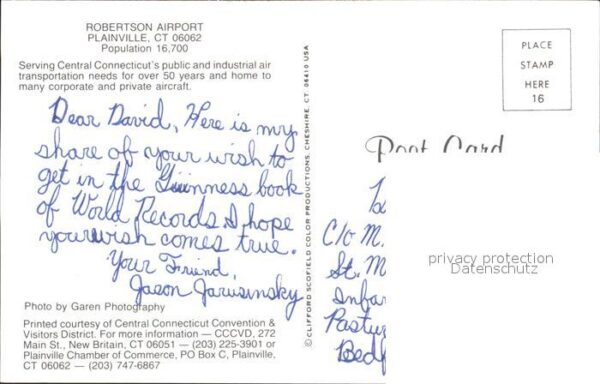 ROBERTSON AIRPORT
PLAINVILLE, CT 06062
Population 16,700
Serving Central Connecticut's public and industrial air
transportation needs for over 50 years and home to
many corporate and private aircraft.
Dear David, Here is my
share of your wish to
get in the Guinness book
of World Records I hope
your wish comes true.
Your Friend,
Jason Jarusinsky
Photo by Garen Photography
Printed courtesy of Central Connecticut Convention &
Visitors District. For more information — CCCVD, 272
Main St., New Britain, CT 06051 — (203) 225-3901 or
Plainville Chamber of Commerce, PO Box C, Plainville,
CT 06062 — (203) 747-6867
© CLIFFORD SCOFIELD COLOR PRODUCTIONS, CHESHIRE, CT. 06410 USA
PLACE
STAMP
HERE
16
Post Card
C/o M.
St. M
Infar
Pastu
Bedf
privacy protection
Datenschutz